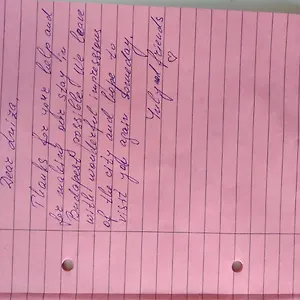 Dear Luiza,
Thanks for your help and
for making our stay in
Budapest possible! We leave
with wonderful impressions
of the city and hope to
visit you again someday.
friends